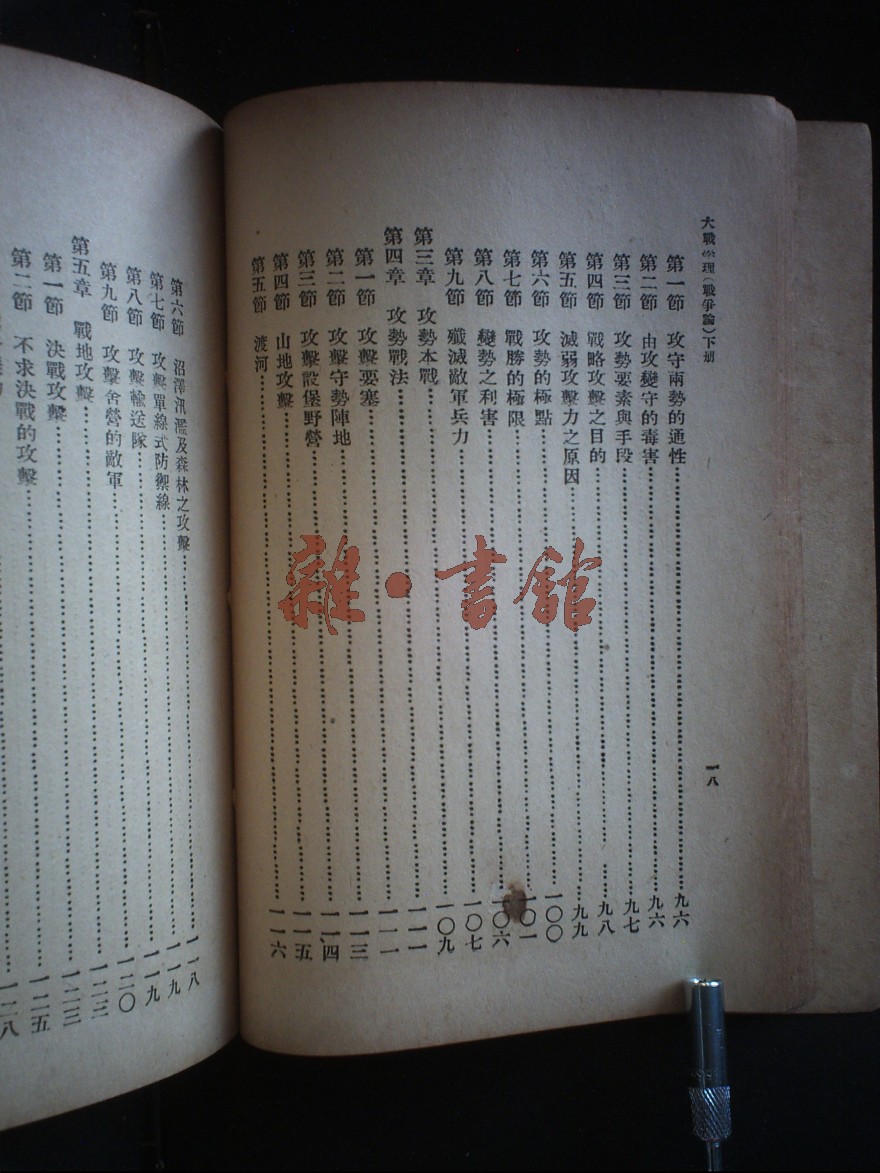 大戰𭕄理(戰爭論)下册
一八
第一節 攻守兩勢的通性……九六
第二節 由攻變守的毒害……九六
第三節 攻勢要素與手段……九七
第四節 戰略攻擊之目的……九八
第五節 減弱攻擊力之原因……九九
第六節 攻勢的極點……一〇〇
第七節 戰勝的極限……一〇一
第八節 變勢之利害……一〇六
第九節 殲滅敵軍兵力……一〇七
第三章 攻勢本戰……一〇九
第四章 攻勢戰法……一一一
第一節 攻擊要塞……一一一
第二節 攻擊守勢陣地……一一三
第三節 攻擊設堡野營……一一四
第四節 山地攻擊……一一五
第五節 渡河……一一六
第六節 沼澤汎濫及森林之攻擊……一一八
第七節 攻擊單線式防禦線……一一九
第八節 攻擊輸送隊……一一九
第九節 攻擊舍營的敵軍……一二〇
第五章 戰地攻擊……一二三
第一節 決戰攻擊……一二三
第二節 不求決戰的攻擊……一二五
一二八
雜·書館